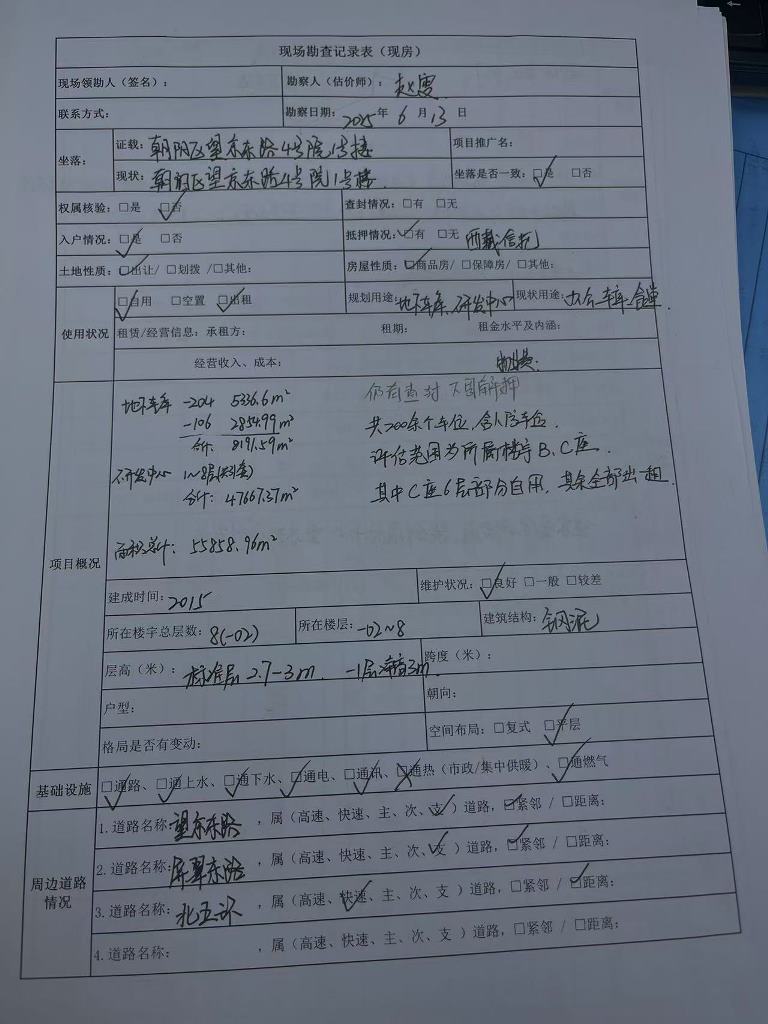 现场勘查记录表（现房）
现场领勘人（签名）： 勘察人（估价师）：赵雯
联系方式： 勘察日期：2025年 6 月 13 日
坐落： 证载：朝阳区望京东路4号院1号楼 项目推广名：
现状：朝阳区望京东路4号院1号楼. 坐落是否一致：☑是 □否
权属核验：□是 ☑否 查封情况：□有 □无
入户情况：☑是 □否 抵押情况：☑有 □无 西藏信托
土地性质：☑出让/ □划拨 /□其他： 房屋性质：☑商品房/ □保障房/ □其他：
使用状况 ☑自用 □空置 ☑出租 规划用途：地下车库、研发中心 现状用途：办公、车库、食堂.
租赁/经营信息：承租方： 租期： 租金水平及内涵：
经营收入、成本： 物业费：
项目概况
地下车库 -204 5336.6m² 仍有查封
-106 2854.99m² 共200余个车位，含人防车位.
合计 8191.59m² 评估范围为所属楼宇B、C座.
研发中心 1~8层
合计：47667.37m² 其中C座6层部分自用，其余全部出租.
面积总计：55858.96m²
建成时间：2015 维护状况：☑良好 □一般 □较差
所在楼宇总层数：8(-02) 所在楼层：-02~8 建筑结构：钢混
层高（米）：标准层2.7-3m. -1层 3m. 跨度（米）：
户型： 朝向：
格局是否有变动： 空间布局：□复式 ☑平层
基础设施 ☑通路、☑通上水、☑通下水、☑通电、☑通讯、☒通热（市政/集中供暖）、☑通燃气
周边道路情况
1.道路名称：望京东路 ，属（高速、快速、主、次、支✓）道路，☑紧邻 / □距离：
2.道路名称：屏翠东路 ，属（高速、快速、主、次、支✓）道路，☑紧邻 / □距离：
3.道路名称：北五环 ，属（高速、快速✓、主、次、支 ）道路，□紧邻 / ☑距离：
4.道路名称： ，属（高速、快速、主、次、支 ）道路，□紧邻 / □距离：